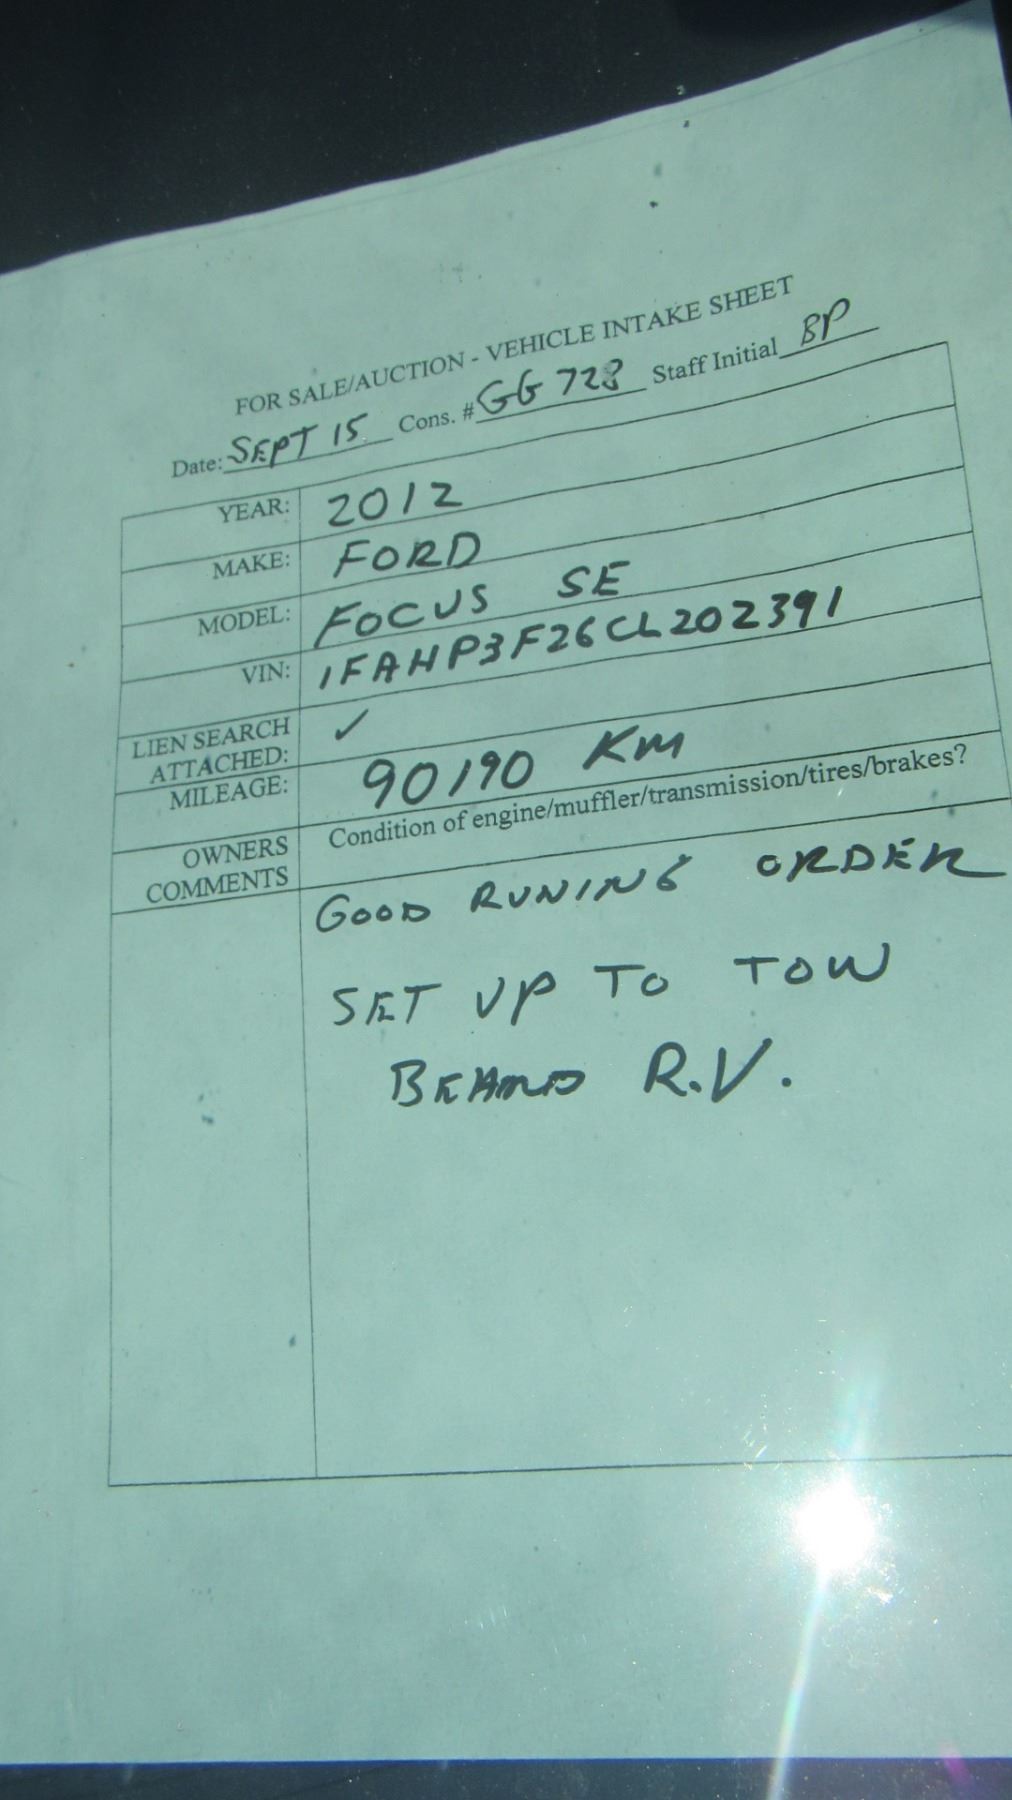 FOR SALE/AUCTION - VEHICLE INTAKE SHEET
Date: SEPT 15 Cons. # GG 728 Staff Initial BP
YEAR: 2012
MAKE: FORD
MODEL: FOCUS SE
VIN: 1FAHP3F26CL202391
LIEN SEARCH ATTACHED: ✓
MILEAGE: 90190 KM
OWNERS COMMENTS Condition of engine/muffler/transmission/tires/brakes?
GOOD RUNING ORDER
SET UP TO TOW
BEHIND R.V.